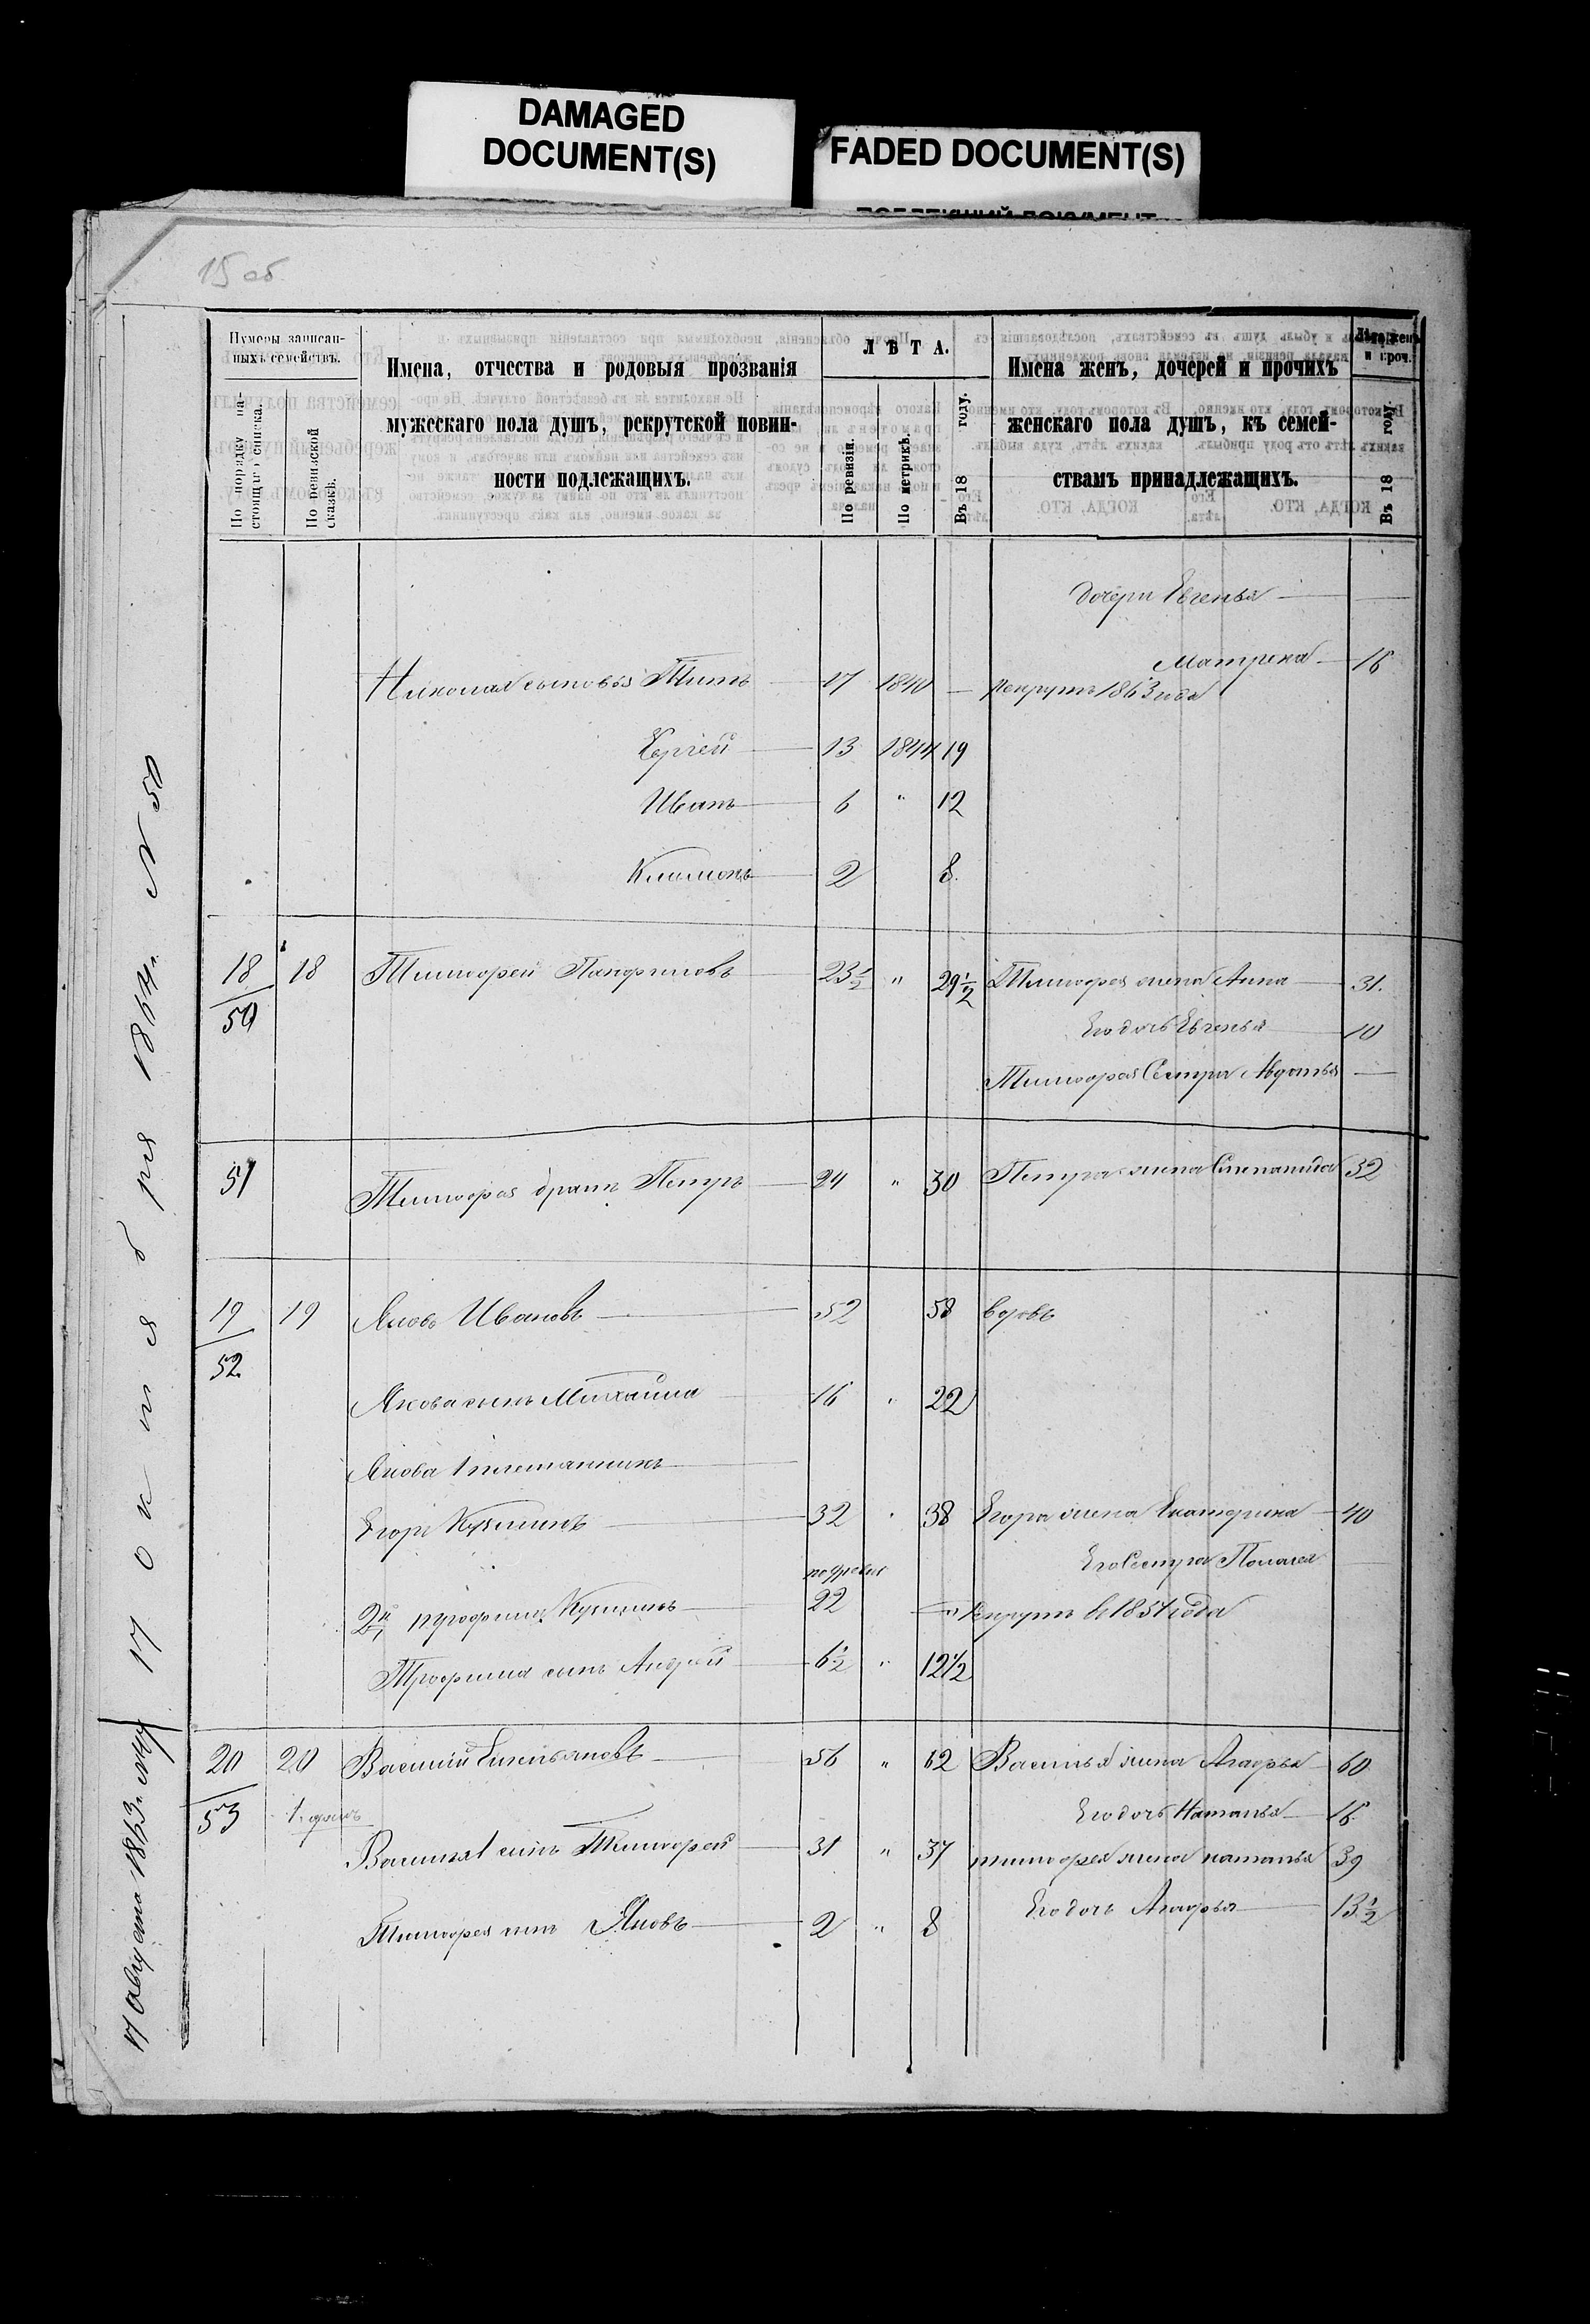 DAMAGED
DOCUMENT(S)
FADED DOCUMENT(S)
15 об
Нумеры записан-
ныхъ семействъ.
По порядку на-
стоящаго списка.
По ревизской
сказкѣ.
Имена, отчества и родовыя прозванія
мужескаго пола душъ, рекрутской повин-
ности подлежащихъ.
ЛѢТА.
По ревизіи.
По метрикѣ.
Въ 18 году.
Имена женъ, дочерей и прочихъ
женскаго пола душъ, къ семей-
ствамъ принадлежащихъ.
Лѣта женъ
и проч.
Въ 18 году.
дочери Евгенья —
Матрена — 16
Николая сыновья Титъ 17 1840 — рекрутъ 1863 года
Сергей 13 1844 19
Иванъ 6 " 12
2 8.
18/50 18 Тимофей Панфиловъ 23½ " 29½ Тимофея жена Анна 31.
Его дочь Евгенья 10
Тимофея Сестра Авдотья —
51 Тимофея братъ Петръ 24 " 30 Петра жена Степанида 32
19/52. 19 Яковъ Ивановъ 52 58 вдовъ
Якова сынъ Михаила 16 " 22
Якова 1 племянникъ
Егоръ Кузминъ 32 " 38 Егора жена Екатерина 40
Его Сестра Пелагея —
2й трофимъ Кузминъ 22 — " рекрутъ в 1854 года
Трофима сынъ Андрей 6½ " 12½
20/53 20 Василій Емельяновъ 56 " 62 Василья жена Агафья 60
Его дочь Наталья 16.
Василья 1 сынъ Тимофей 31 " 37 тимофея жена наталья 39
Тимофея сынъ Яковъ 2 " 8 Его дочь Агафья 13½
17 Августа 1863 г. 17 октября 1864 г. N 50